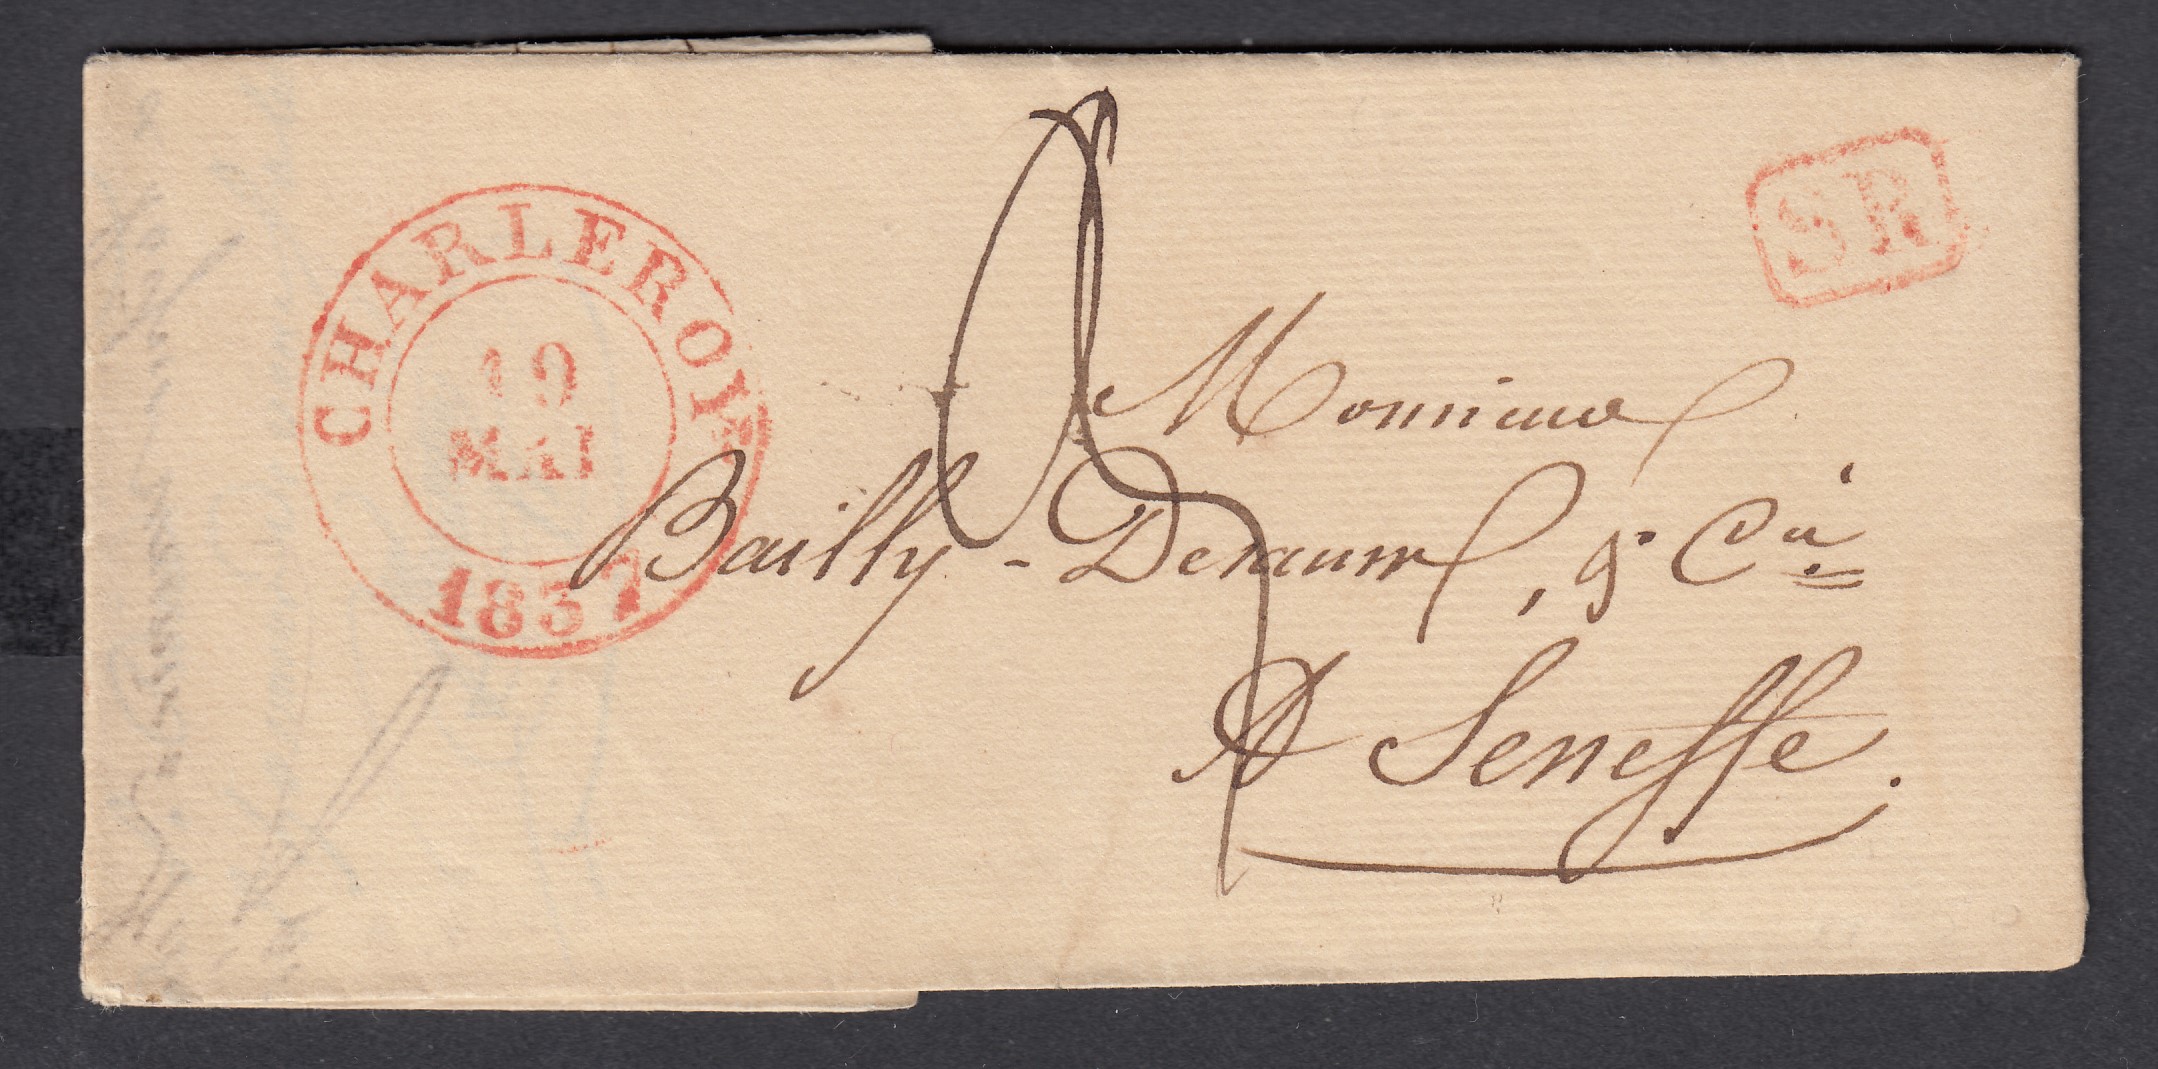 CHARLEROY
19
MAI
1837
SR
Monsieur
Bailly - Deraume, & Cie
A Seneffe.